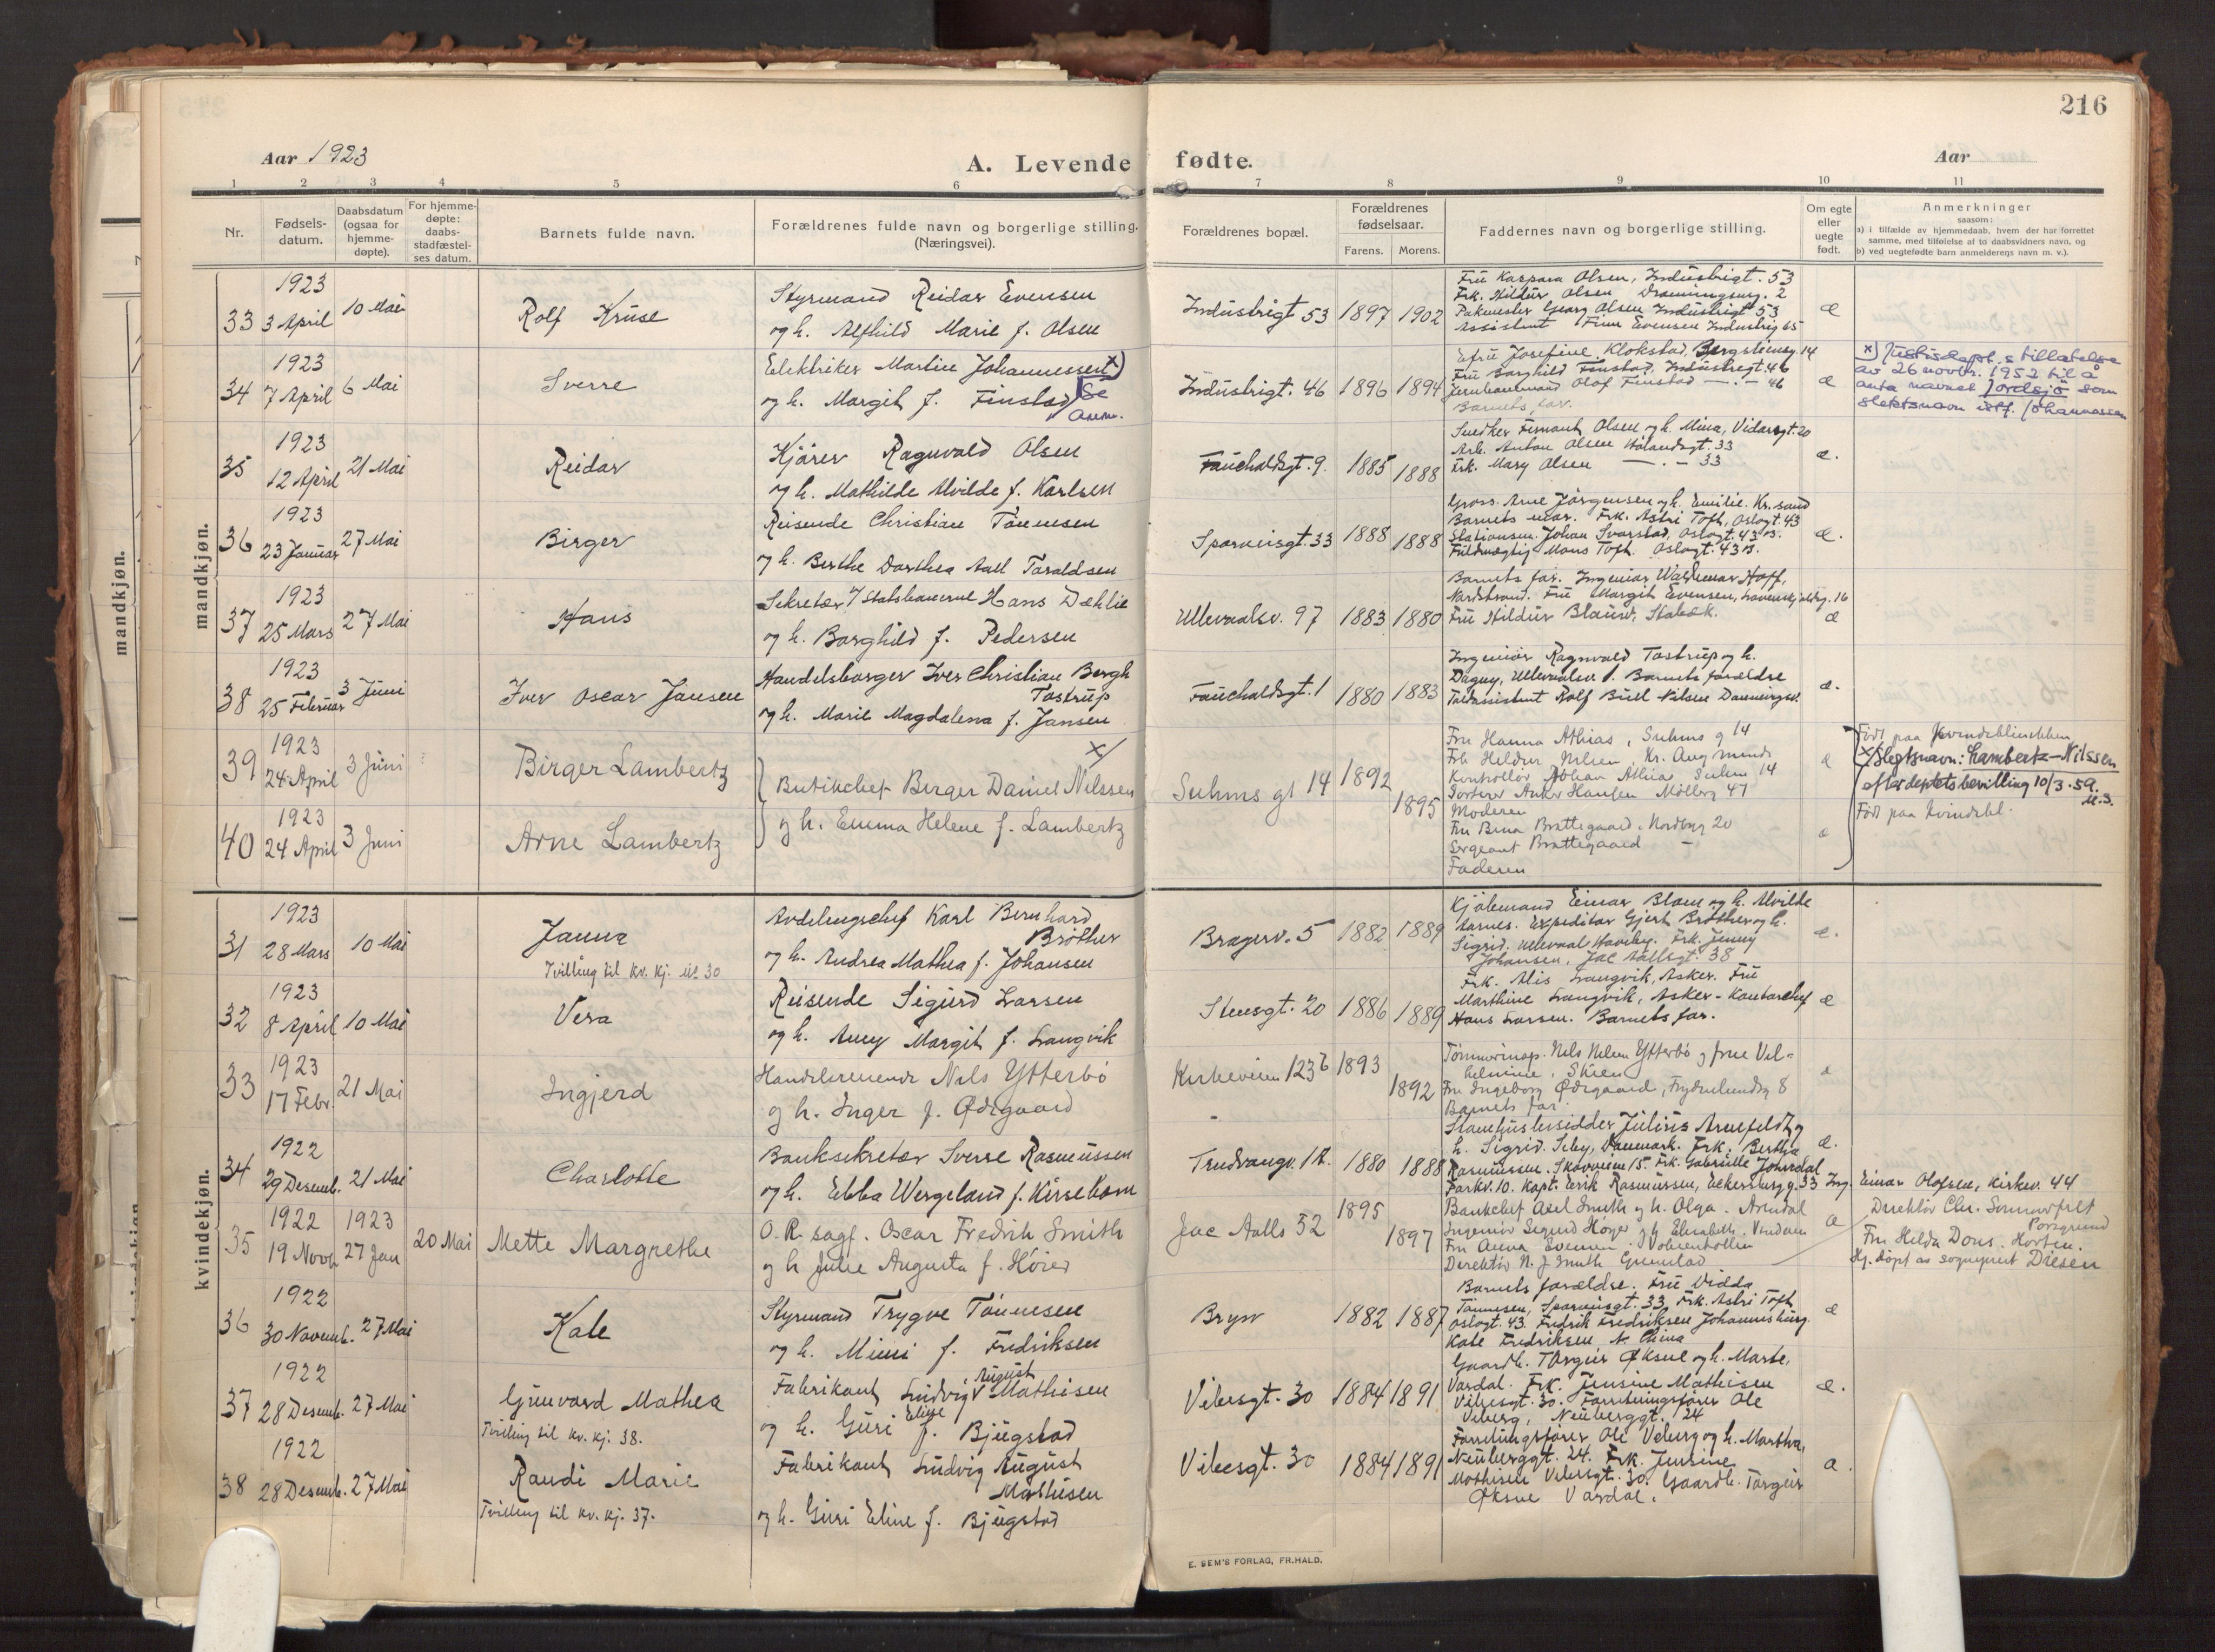 216
Aar 1923
A. Levende fødte.
Aar
1 2 3 4 5 6 7 8 9 10 11
Nr.
Fødsels-
datum.
Daabsdatum
(ogsaa for
hjemme-
døpte).
For hjemme-
døpte:
daabs-
stadfæstel-
ses datum.
Barnets fulde navn.
Forældrenes fulde navn og borgerlige stilling.
(Næringsvei).
Forældrenes bopæl.
Forældrenes
fødselsaar.
Farens. Morens.
Faddernes navn og borgerlige stilling.
Om egte
eller
uegte
født.
Anmerkninger
saasom:
a) i tilfælde av hjemmedaab, hvem der har forrettet
samme, med tilføielse at to daabsvidners navn, og
b) ved uegtefødte barn anmelderens navn m. v.).
mandkjøn.
mandkjøn.
1923
33 3 April 10 Mai
Rolf Kruse
Styrmand Reidar Evensen
og h. Alfhild Marie f. Olsen
Industrigt 53 1897 1902
Fru Kaspara Olsen, Industrigt. 53
Frk. Hildur Olsen Dronningensvg. 2
Pakmester Georg Olsen Industrigt 53
Assistent Finn Evensen Industrig 65
æ
1923
34 7 April 6 Mai
Sverre
Elektriker Martin Johannessen x)
og h. Margit f. Finstad Se
anm.
Industrigt. 46 1896 1894
Josefine Klokstad, Bergsliensg. 14
Fru Borghild Finstad, Industrigt. 46
Jernbanemand Olof Finstad — " — 46
Barnets far.
æ
x) Justisdept.s tillatelse
av 26 novbr. 1952 til å
anta navnet Jordsjö som
slektsnavn istf. Johannessen
1923
35 12 April 21 Mai
Reidar
Kjører Ragnvald Olsen
og h. Mathilde Alvilde f. Karlsen
Fauchaldsgt. 9. 1885 1888
Snedker Fernant Olsen og h. Mina, Vidarsgt. 20
Arb. Anton Olsen Uelandsgt. 33
Frk. Mary Olsen — " — 33
æ.
1923
36 23 Januar 27 Mai
Birger
Reisende Christian Tønnesen
og h. Berthe Dorthea Aall Taraldsen
Sporveisgt. 33 1888 1888
Gross. Arne Jørgensen og h. Emilie. Kr.sand
Barnets mor. Frk. Astri Toft, Oslogt. 43
Stationsm. Johan Svarstad, Oslogt. 43 B.
Fuldmægtig Mons Toft. Oslogt. 43 B.
æ.
1923
37 25 Mars 27 Mai
Hans
Sekretær v/ Statsbanerne Hans Dæhlie
og h. Borghild f. Pedersen
Ullevaalsv. 97 1883 1880
Barnets far. Ingeniør Waldemar Hoff,
Nordstrand. Fru Margit Evensen,
Fru Hildur Blauw, Stabæk.
æ
1923
38 25 Februar 3 Juni
Iver Oscar Jansen
Handelsborger Iver Christian Bergh
Tostrup
og h. Marie Magdalena f. Jansen
Fauchaldsgt. 1 1880 1883
Ingeniør Ragnvald Tostrup og h.
Dagny, Ullevaalsv 1. Barnets forældre
Toldassistent Rolf Buell Nilsen
æ.
1923
39 24 April 3 Juni
Birger Lambertz
x/
Butikchef Birger Daniel Nilssen
og h. Emma Helene f. Lambertz
Suhms gt 14 1892
1895
Fru Hanna Athias, Suhms g 14
Frk Heldur Nelsen, Kr. Aug
Kontrollør Johan Athias Suhm 14
Sorterer Anker Hansen Møllerg 47
Moderen
æ
Født paa Kvindeklinikken
x/ Slegtsnavn: Lambertz-Nilssen
efter deptets bevilling 10/3.59.
1923
40 24 April 3 Juni
Arne Lambertz
Fru Bina Brattegaard, Nordbyg 20
Sergeant Brattegaard —
Faderen
æ
Født paa Kvindekl.
kvindekjøn.
1923
31 28 Mars 10 Mai
Janna
Tvilling til kv. kj. № 30
Avdelingschef Karl Bernhard
Brøther
og h. Andrea Mathea f. Johansen
Bragesv. 5 1882 1889
Kjølemand Einar Blom og h. Alvilde
Aarnes. Expeditør Gjert Brøther og h.
Sigrid. Ullevaal Haveby. Frk. Jenny
Johansen, Jac Aallsgt. 38
æ.
1923
32 8 April 10 Mai
Vera
Reisende Sigurd Larsen
og h. Anny Margit f. Langvik
Stensgt. 20 1886 1889
Frk. Alis Langvik, Asker. Fru
Marthine Langvik, Asker - Kontorchef
Hans Larsen. Barnets far.
æ
1923
33 17 Febr. 21 Mai
Ingjerd
Handelsreisende Nils Ytterbø
og h. Inger f. Ødegaard
Kirkeveien 123 b 1893
1892
Tømmerinsp. Nils Nelsen Ytterbø og frue Vil-
helmine, Skien
Fru Ingeborg Ødegaard, Frydenlundsg 8
Barnets far.
1922
34 29 Desemb. 21 Mai
Charlotte
Banksekretær Sverre Rasmussen
og h. Ebba Wergeland f. Kirsebom
Trudvangv. 1 A. 1880 1888
Stamhusbesidder Julius Arnefeldt og
h. Sigrid. Seby, Danmark. Frk. Bertha
Rasmussen. Skovveien 15. Frk. Gabrielle Johnsdal
Parkv. 10. Kapt. Erik Rasmussen, Eckersbergg. 33 Ing. Einar Olafsen, Kirkev. 44
æ.
1922 1923
35 19 Novb 27 Jan 20 Mai
Mette Margrethe
O. R. sagf. Oscar Fredrik Smith
og h Julie Augusta f. Høier
Jac Aalls 52 1895
1897
Bankchef Axel Smith og h. Olga. Arendal
Ingeniør Sigurd Høyer og h Elisabeth,
Fru Anna Evensen
Direktør N. J Smith Grimstad
æ
Direktør Chr. Sommerfelt
Porsgrund
Fru Hilda Dons. Horten.
Hj. døpt av sogneprest Diesen
1922
36 30 Novemb. 27 Mai
Kate
Styrmand Trygve Tønnesen
og h. Mimi f. Fredriksen
Bryn 1882 1887
Barnets forældre. Fru Vidda
Tønnesen, Sporveisgt. 33, Frk. Astri Toft
Oslogt. 43. Fredrik Fredriksen Johannisburg.
Kate Fredriksen N. China
æ
1922
37 28 Desemb. 27 Mai
Gunvard Mathea
Tvilling til kv. kj. 38.
Fabrikant Ludvig August Mathisen
og h. Guri Eline f. Bjugstad
Vibesgt. 30 1884 1891
Gaardb. Torgeir Øksne og h. Marte,
Vardal. Frk. Jensine Mathisen
Vibesgt. 30. Forretningsfører Ole
Viberg, Neuberggt. 24
æ.
1922
38 28 Desemb. 27 Mai
Randi Marie
Tvilling til kv. kj. 37.
Fabrikant Ludvig August
Mathisen
og h. Guri Eline f. Bjugstad
Vibesgt. 30 1884 1891
Forretningsfører Ole Viberg og h. Martha,
Neuberggt. 24. Frk. Jensine
Mathisen Vibesgt. 30. Gaardb. Torgeir
Øksne Vardal.
æ.
E. SEM'S FORLAG, FR.HALD.